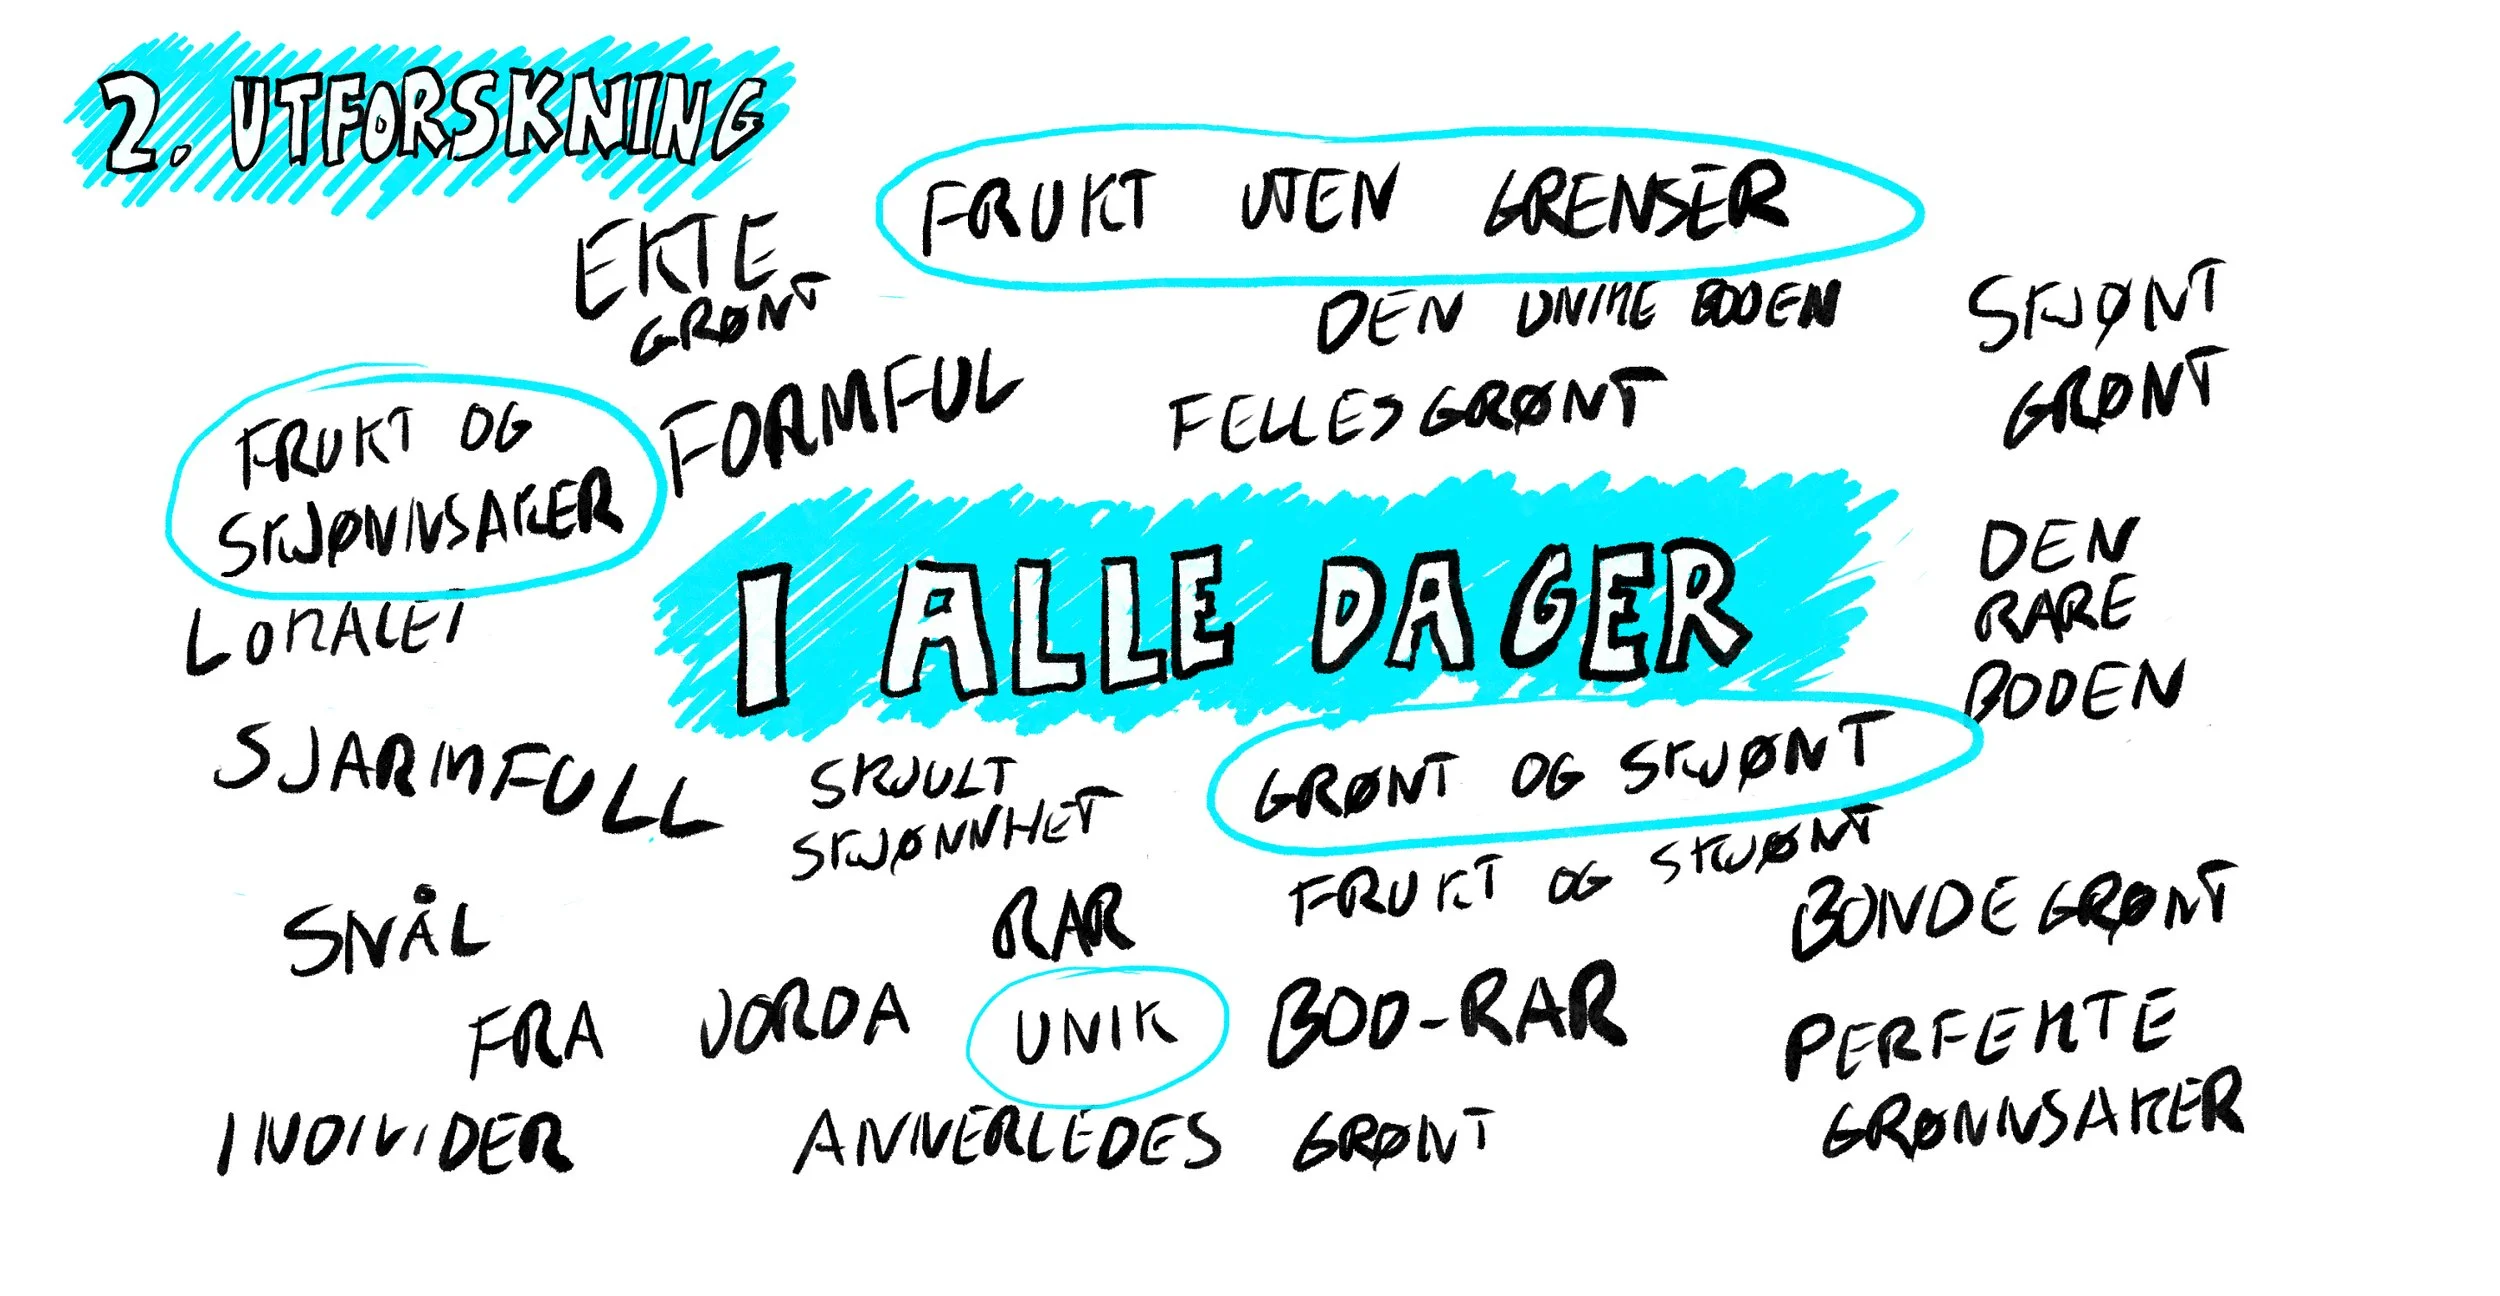 2. UTFORSKNING
FRUKT UTEN GRENSER
EKTE
GRØNT
DEN UNIKE BODEN
SKJØNT
GRØNT
FORMFUL
FELLESGRØNT
FRUKT OG
SKJØNNSAKER
I ALLE DAGER
DEN
RARE
BODEN
LOKALET
SJARMFULL
SKJULT
SKJØNNHET
GRØNT OG SKJØNT
FRUKT OG SKJØNT
SNÅL
RAR
BONDEGRØNT
FRA JORDA
UNIK
BOD-RAR
PERFEKTE
GRØNNSAKER
INDIVIDER
ANNERLEDES GRØNT